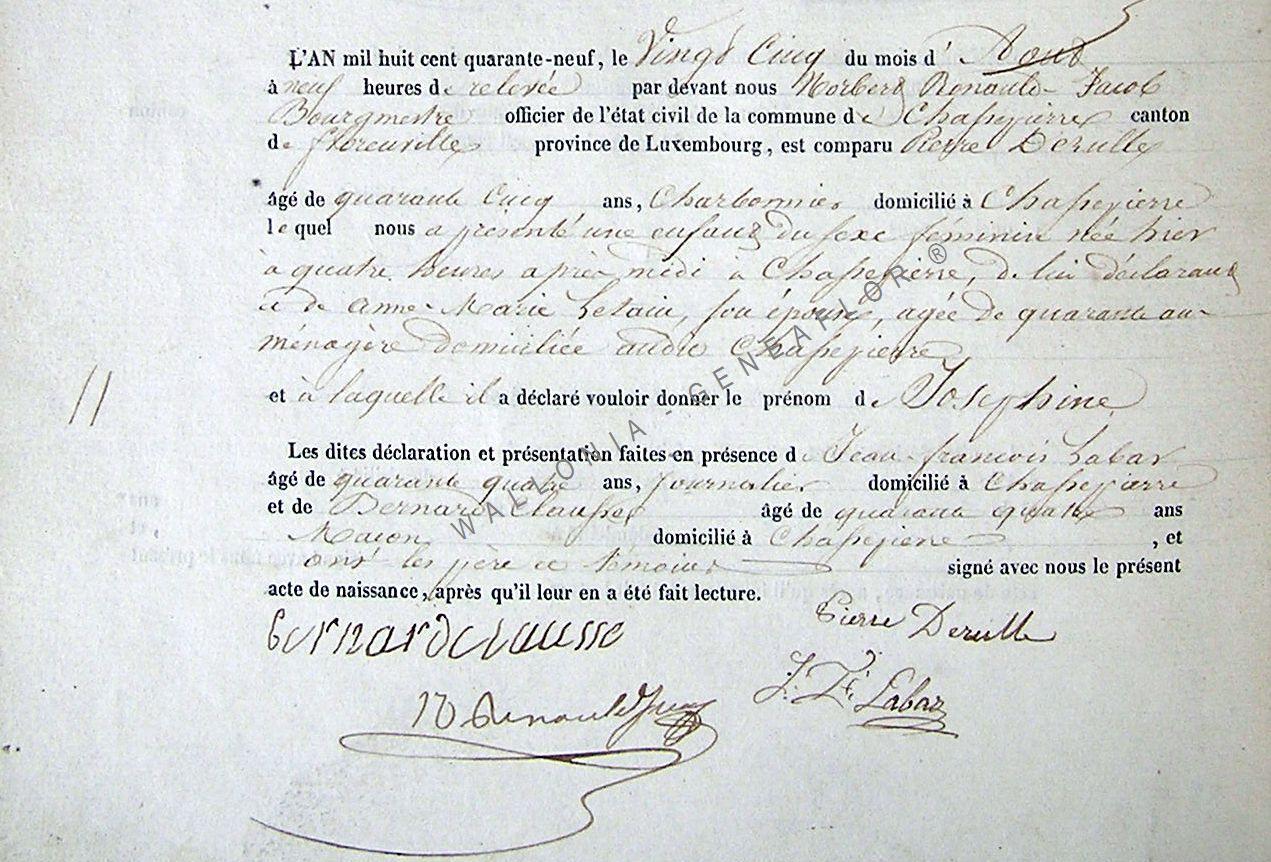 L'AN mil huit cent quarante-neuf, le Vingt Cinq du mois d' Aout
à neuf heures de relevée par devant nous Norbert Renauld-Jacob
Bourgmestre officier de l'état civil de la commune de Chassepierre canton
de florenville province de Luxembourg, est comparu Pierre Derulle
âgé de quarante Cinq ans, Charbonnier domicilié à Chassepierre
lequel nous a présenté une enfant du sexe féminin née hier
à quatre heures après midi à Chassepierre, de lui déclarant
et de anne-Marie Letain, son épouse, agée de quarante ans
ménagère domiciliée audit Chassepierre,
et à laquelle il a déclaré vouloir donner le prénom de Josephine
11
Les dites déclaration et présentation faites en présence de Jean-francois Labar
âgé de quarante quatre ans, Journalier domicilié à Chassepierre
et de Bernard Clausse âgé de quarante quatre ans
Macon domicilié à Chassepierre , et
ont les père et témoins signé avec nous le présent
acte de naissance, après qu'il leur en a été fait lecture.
Bernard Clausse Pierre Derulle
N Renauld J. F. Labar
WALLONIA - GENEAFLOR ®